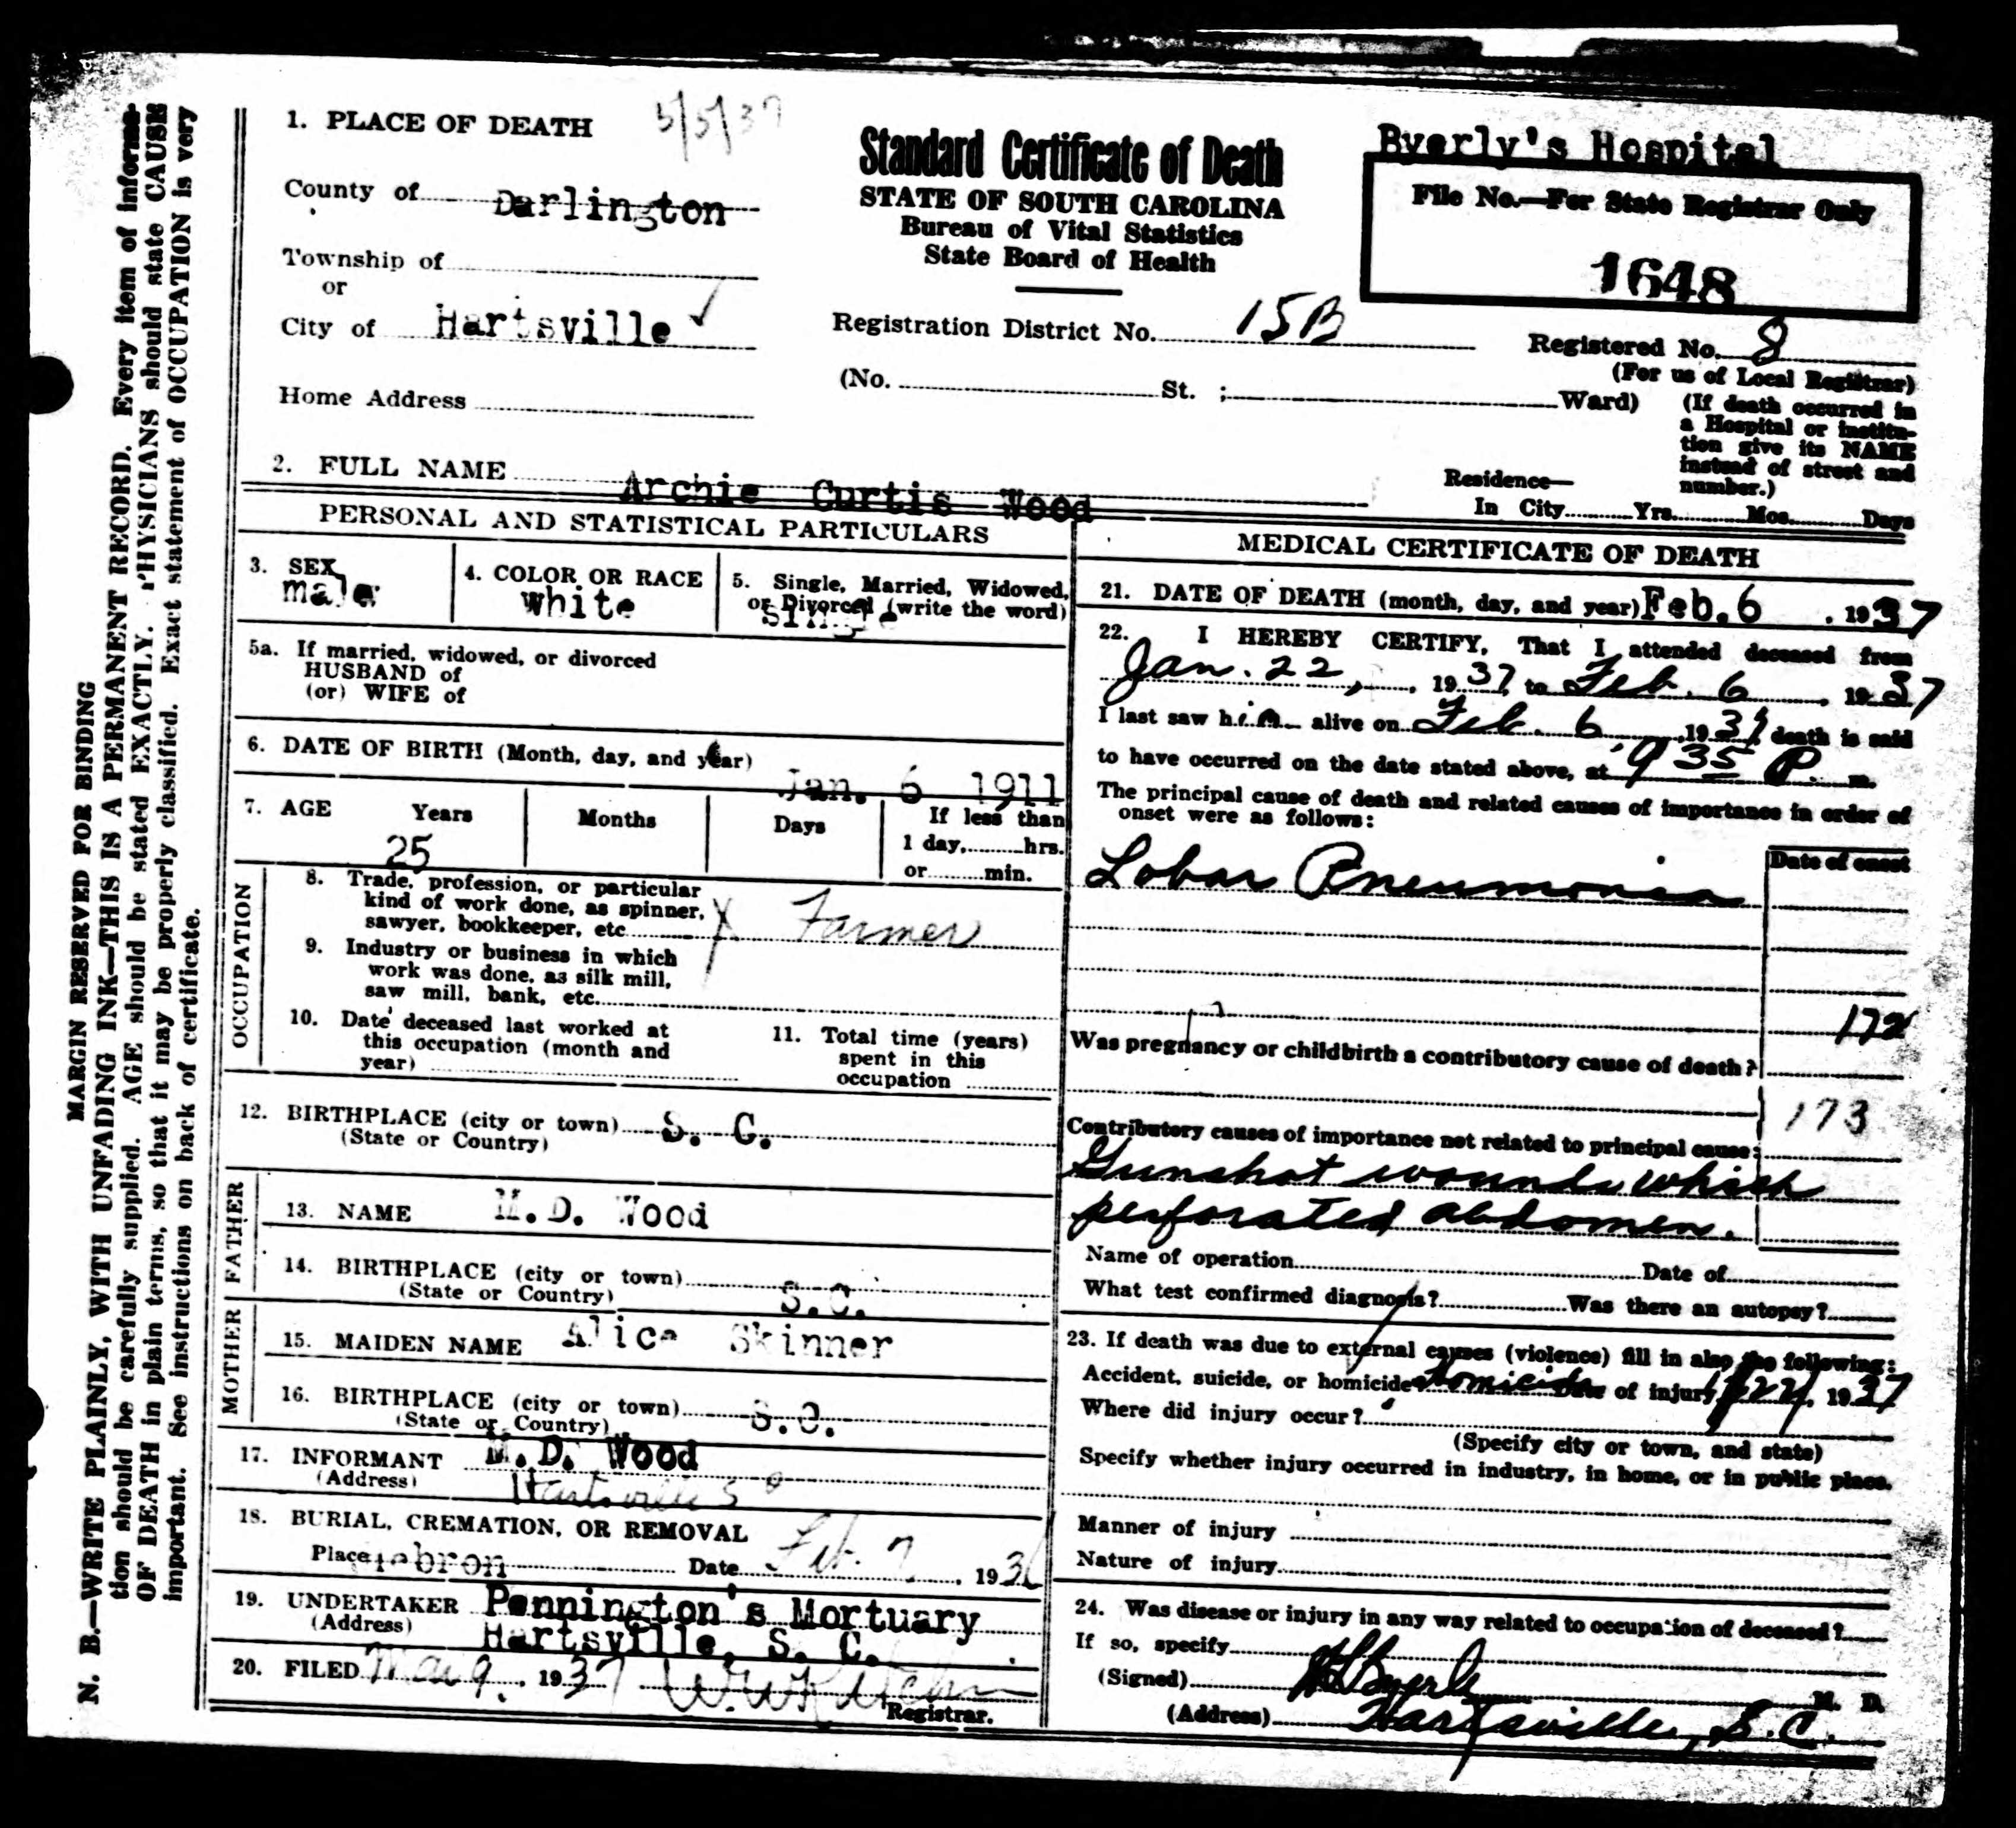 N. B.—WRITE PLAINLY, WITH UNFADING INK—THIS IS A PERMANENT RECORD. Every item of informa-
tion should be carefully supplied. AGE should be stated EXACTLY. PHYSICIANS should state CAUSE
OF DEATH in plain terms, so that it may be properly classified. Exact statement of OCCUPATION is very
important. See instructions on back of certificate.
MARGIN RESERVED FOR BINDING
1. PLACE OF DEATH
County of Darlington
Township of
or
City of Hartsville ✓
Home Address
Standard Certificate of Death
STATE OF SOUTH CAROLINA
Bureau of Vital Statistics
State Board of Health
Registration District No. 15B
(No. St. ; Ward)
Byerly's Hospital
File No.—For State Registrar Only
1648
Registered No. 8
(For us of Local Registrar)
(If death occurred in
a Hospital or institu-
tion give its NAME
instead of street and
number.)
2. FULL NAME Archie Curtis Wood
Residence—
In City Yrs. Mos. Days
PERSONAL AND STATISTICAL PARTICULARS
3. SEX
male
4. COLOR OR RACE
white
5. Single, Married, Widowed,
or Divorced (write the word)
single
5a. If married, widowed, or divorced
HUSBAND of
(or) WIFE of
6. DATE OF BIRTH (Month, day, and year)
Jan. 6 1911
7. AGE Years Months Days If less than
1 day, hrs.
or min.
25
OCCUPATION
8. Trade, profession, or particular
kind of work done, as spinner,
sawyer, bookkeeper, etc Farmer
9. Industry or business in which
work was done, as silk mill,
saw mill, bank, etc.
10. Date deceased last worked at
this occupation (month and
year)
11. Total time (years)
spent in this
occupation
12. BIRTHPLACE (city or town) S. C.
(State or Country)
FATHER
13. NAME M.D. Wood
14. BIRTHPLACE (city or town)
(State or Country) S.C.
MOTHER
15. MAIDEN NAME Alice Skinner
16. BIRTHPLACE (city or town) S.C.
(State or Country)
17. INFORMANT M.D. Wood
(Address) Hartsville S C
18. BURIAL, CREMATION, OR REMOVAL
Place Hebron Date Feb. 7, 193
19. UNDERTAKER Pennington's Mortuary
(Address) Hartsville, S. C.
20. FILED Mar 9, 1937
Registrar.
MEDICAL CERTIFICATE OF DEATH
21. DATE OF DEATH (month, day, and year) Feb. 6 , 1937
22. I HEREBY CERTIFY, That I attended deceased from
Jan. 22, , 1937, to Feb. 6 , 1937
I last saw him alive on Feb. 6 , 1937 death is said
to have occurred on the date stated above, at 9 35 P. m.
The principal cause of death and related causes of importance in order of
onset were as follows:
Date of onset
Lobar Pneumonia
172
Was pregnancy or childbirth a contributory cause of death?
173
Contributory causes of importance not related to principal cause:
Gunshot wounds which
perforated abdomen.
Name of operation Date of
What test confirmed diagnosis? Was there an autopsy?
23. If death was due to external causes (violence) fill in also the following:
Accident, suicide, or homicide? Homicide Date of injury 1/22/, 1937
Where did injury occur?
(Specify city or town, and state)
Specify whether injury occurred in industry, in home, or in public place.
Manner of injury
Nature of injury
24. Was disease or injury in any way related to occupation of deceased?
If so, specify
(Signed) Byerly M. D.
(Address) Hartsville, S.C.